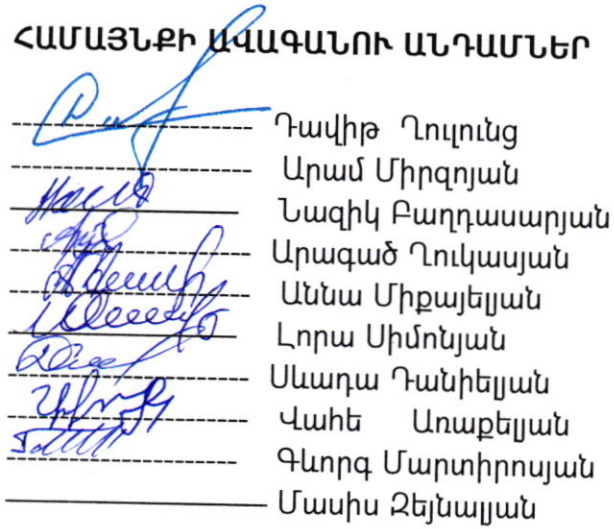 ՀԱՄԱՅՆՔԻ ԱՎԱԳԱՆՈՒ ԱՆԴԱՄՆԵՐ
Դավիթ Ղուլունց
Արամ Միրզոյան
Նազիկ Բաղդասարյան
Արագած Ղուկասյան
Աննա Միքայելյան
Լորա Սիմոնյան
Սևադա Դանիելյան
Վահե Առաքելյան
Գևորգ Մարտիրոսյան
Մասիս Զեյնալյան